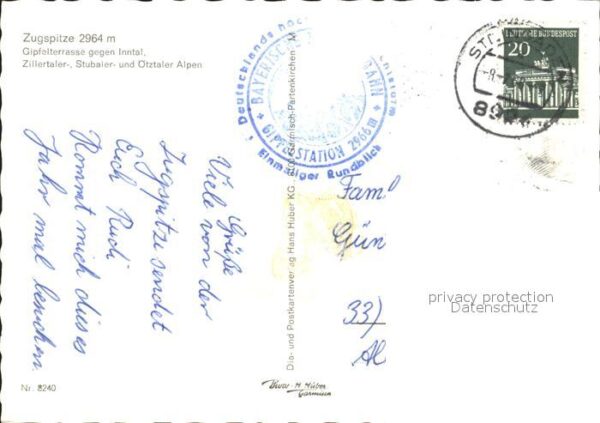 Zugspitze 2964 m
Gipfelterrasse gegen Inntal,
Zillertaler-, Stubaier- und Ötztaler Alpen
Viele Grüße
von der
Zugspitze sendet
Euch Rudi
Kommt mich dieses
Jahr mal besuchen
Fam
Gün
33)
Al
BAYERISCHE
GIPFELSTATION 2966 m
Deutschlands
Einmaliger Rundblick
DEUTSCHE BUNDESPOST
20
Dia- und Postkartenverlag Hans Huber KG, Garmisch-Partenkirchen
privacy protection
Datenschutz
Nr. 8240
H. Huber
Garmisch